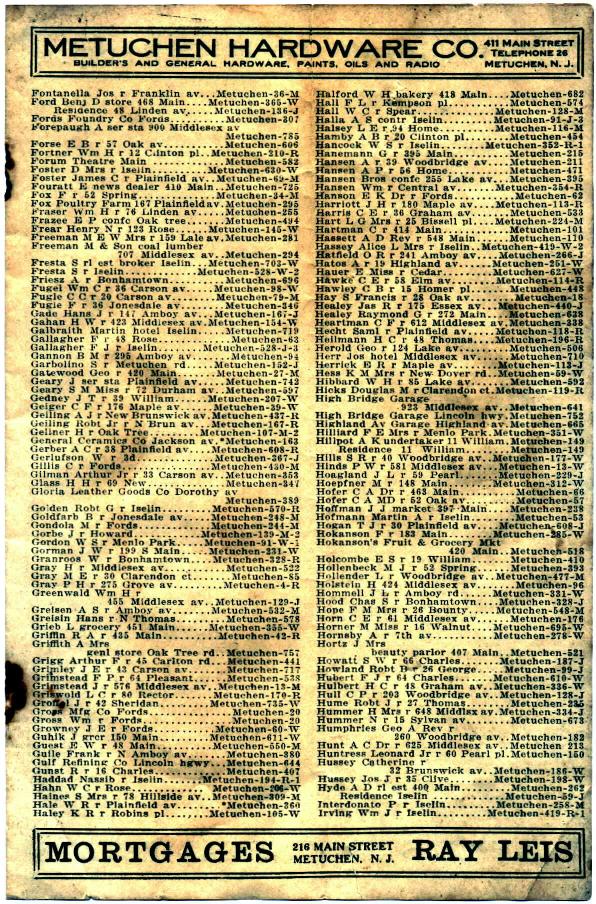 METUCHEN HARDWARE CO. 411 MAIN STREET
TELEPHONE 26
BUILDER'S AND GENERAL HARDWARE, PAINTS, OILS AND RADIO METUCHEN, N. J.
Fontanella Jos r Franklin av...Metuchen-36-M
Ford Benj D store 468 Main....Metuchen-365-W
Residence 48 Linden av.....Metuchen-136-J
Fords Foundry Co Fords.......Metuchen-307
Forepaugh A ser sta 900 Middlesex av
Metuchen-785
Forse E B r 57 Oak av.........Metuchen-606
Fortner Wm H r 12 Clinton pl..Metuchen-210-R
Forum Theatre Main............Metuchen-582
Foster D Mrs r Iselin.........Metuchen-630-W
Foster James C r Plainfield av..Metuchen-69-M
Fouratt E news dealer 410 Main.Metuchen-725
Fox F r 52 Spring.............Metuchen-34-M
Fox Poultry Farm 167 Plainfield av.Metuchen-295
Fraser Wm H r 76 Linden av....Metuchen-255
Frazee E P confc Oak tree.....Metuchen-494
Frear Henry N r 123 Rose......Metuchen-145-W
Freeman M E W Mrs r 159 Lale av.Metuchen-281
Freeman M & Son coal lumber
707 Middlesex av..Metuchen-294
Fresta S rl est broker Iselin..Metuchen-703-W
Fresta S r Iselin.............Metuchen-528-W-2
Friess A r Bonhamtown.........Metuchen-696
Fugel Wm C r 36 Carson........Metuchen-98-W
Fugle C C r 20 Carson.........Metuchen-79-M
Fugle F r 36 Jonesdale av.....Metuchen-346
Gade Hans J r 147 Amboy av....Metuchen-167-J
Gahan H W r 423 Middlesex av..Metuchen-154-W
Galbraith Martin hotel Iselin...Metuchen-719
Gallagher F r 48 Rose.........Metuchen-63
Gallagher F J r Iselin........Metuchen-528-J-3
Gannon B M r 295 Amboy av.....Metuchen-94
Garbolino S r Metuchen rd.....Metuchen-152-J
Gatewood Geo r 420 Main.......Metuchen-27-M
Geary J ser sta Plainfield av...Metuchen-742
Geary S M Miss r 72 Durham av..Metuchen-597
Gedney J T r 39 William.......Metuchen-207-W
Geiger C F r 176 Maple av.....Metuchen-39-W
Geiling A J r New Brunswick av.Metuchen-437-R
Geiling Robt Jr r N Brun av...Metuchen-167-R
Geliner H r Oak Tree..........Metuchen-107-M-2
General Ceramics Co Jackson av.*Metuchen-163
Gerber A C r 38 Plainfield av...Metuchen-608-R
Gerlufson W r 3d..............Metuchen-267-J
Gillis C r Fords..............Metuchen-430-M
Gilman Arthur Jr r 33 Carson..Metuchen-353
Glass H H r 69 New............Metuchen-347
Gloria Leather Goods Co Dorothy av
Metuchen-389
Golden Robt G r Iselin........Metuchen-570-R
Goldfarb B r Jonesdale av.....Metuchen-248-M
Gondola M r Fords.............Metuchen-244-M
Gorbe J r Howard..............Metuchen-139-M-2
Gordon W S r Menlo Park.......Metuchen-91-W-1
Gorman J W r 199 S Main.......Metuchen-231-W
Granrose W r Bonhamtown.......Metuchen-328-R
Gray H r Middlesex av.........Metuchen-522
Gray M E r 30 Clarendon ct....Metuchen-85
Gray P H r 275 Grove av.......Metuchen-4-R
Greenwald Wm H r
455 Middlesex av..Metuchen-129-J
Greisen A S r Amboy av........Metuchen-532-M
Greisin Hans r N Thomas.......Metuchen-578
Grieb L grocery 451 Main......Metuchen-355-W
Griffin R A r 435 Main........Metuchen-42-R
Griffith A Mrs
genl store Oak Tree rd..Metuchen-757
Grigg Arthur F r 45 Carlton rd..Metuchen-441
Grimley J E r 43 Carson av....Metuchen-717
Grimstead F P r 64 Pleasant...Metuchen-538
Grimstead J r 576 Middlesex av..Metuchen-13-M
Griswold L C r 80 Rector......Metuchen-170-R
J r 42 Sheridan......Metuchen-735-W
Gross Mfg Co Fords............Metuchen-20
Gross Wm r Fords..............Metuchen-20
Growney J E r Fords...........Metuchen-60-W
Guhlk J grcr 150 Main.........Metuchen-611-W
Guest E W r 48 Main...........Metuchen-550-M
Guile Frank r N Amboy av......Metuchen-380
Gulf Refining Co Lincoln hgwy..Metuchen-644
Gunst R r 16 Charles..........Metuchen-407
Haddad Nassib r Iselin........Metuchen-194-R-1
Hahn W C r Rose...............Metuchen-206-W
Haines S Mrs r 78 Hillside av..Metuchen-309-M
Hale W R r Plainfield av......Metuchen-360
Haley K R r Robins pl.........Metuchen-105-W
Halford W H bakery 418 Main...Metuchen-682
Hall F L r Kempson pl.........Metuchen-574
Hall W C r Spear..............Metuchen-128-M
Halla A S contr Iselin........Metuchen-91-J-3
Halsey L E r 94 Home..........Metuchen-116-M
Hamby A B r 20 Clinton pl.....Metuchen-454
Hancock W S r Iselin..........Metuchen-352-R-1
Hanemann G r 395 Main.........Metuchen-215
Hansen A r 39 Woodbridge av...Metuchen-211
Hansen A P r 56 Home..........Metuchen-471
Hansen Bros confc 255 Lake av..Metuchen-395
Hansen Wm r Central av........Metuchen-354-R
Hanson E K Dr r Fords.........Metuchen-62
Harriott J H r 180 Maple av...Metuchen-113-R
Harris C E r 36 Graham av.....Metuchen-533
Hart L G Mrs r 25 Bissell pl...Metuchen-224-M
Hartman C r 414 Main..........Metuchen-101
Hassett A D Rev r 548 Main....Metuchen-110
Hassey Alice L Mrs r Iselin...Metuchen-419-W-2
Hatfield O R r 241 Amboy av...Metuchen-266-J
Hatos A r 19 Highland av......Metuchen-251-W
Hauer E Miss r Cedar..........Metuchen-627-W
Hawke C E r 58 Elm............Metuchen-114-R
Hawley C B r 15 Homer pl......Metuchen-448
Hay S Francis r 28 Oak av.....Metuchen-18
Healey Jas R r 175 Essex av...Metuchen-440-J
Healey Raymond G r 272 Main...Metuchen-628
Heartman C F r 612 Middlesex av.Metuchen-338
Hecht Saml r Plainfield av....Metuchen-118-R
Heilmann H C r 48 Thomas......Metuchen-196-R
Herold Geo r 124 Lake av......Metuchen-506
Herr Jos hotel Middlesex......Metuchen-710
Herrick E R r Maple av........Metuchen-113-J
Hess K M Mrs r New Dover rd...Metuchen-59-W
Hibbard W H r 85 Lake av......Metuchen-592
Hicks Douglas M r Clarendon ct.Metuchen-119-R
High Bridge Garage
923 Middlesex av...Metuchen-641
High Bridge Garage Lincoln hwy.Metuchen-752
Highland Av Garage Highland av.Metuchen-665
Hilliard F E Mrs r Menlo Park.Metuchen-351-W
Hillpot A K undertaker 11 William.Metuchen-149
Residence 11 William......Metuchen-149
Hills S R r 40 Woodbridge av..Metuchen-177-W
Hinds P W r 581 Middlesex av..Metuchen-13-W
Hoagland J L r 59 Pearl.......Metuchen-229-J
Hoepfner M r 148 Main.........Metuchen-32-W
Hofer C A Dr r 463 Main.......Metuchen-66
Hofer C A MD r 52 Oak av......Metuchen-57
Hoffman J J market 397 Main...Metuchen-238
Hofmann Martin A r Iselin.....Metuchen-53
Hogan T J r 30 Plainfield av..Metuchen-608-J
Hokanson F r 183 Main.........Metuchen-285-W
Hokanson's Fruit & Grocery Mkt
420 Main..Metuchen-518
Holcombe E S r 19 William.....Metuchen-410
Hollenbeck M J r 52 Spring....Metuchen-393
Hollender L r Woodbridge av...Metuchen-477-M
Holstein H 424 Middlesex......Metuchen-96
Hommell J L r Amboy rd........Metuchen-331-W
Hood Chas S r Bonhamtown......Metuchen-328-J
Hope P M Mrs r 26 Bounty......Metuchen-548-M
Horn C E r 61 Middlesex av....Metuchen-176
Horner M Miss r 16 Walnut.....Metuchen-695-W
Hornsby A r 7th av............Metuchen-278-W
Hortz J Mrs
beauty parlor 407 Main..Metuchen-521
Howatt S W r 66 Charles.......Metuchen-187-J
Howland Robt D r 26 George....Metuchen-99-J
Hubert F J r 64 Charles.......Metuchen-610-W
Hulbert H C r 48 Graham av....Metuchen-336-W
Hull C P r 203 Woodbridge av..Metuchen-128-J
Hume Robt J r 27 Thomas.......Metuchen-235
Hummer H Mrs r 648 Middlsx av.Metuchen-334-J
Hummer N r 15 Sylvan av.......Metuchen-673
Humphries Geo A Rev r
260 Woodbridge av..Metuchen-182
Hunt A C Dr r 625 Middlesex av Metuchen 213
Huntress Leonard Jr r 60 Pearl pl.Metuchen-150
Hussey Catherine r
32 Brunswick av...Metuchen-186-W
Hussey Jos J r 35 Clive.......Metuchen-198-W
Hyde A D rl est 400 Main......Metuchen-262
Residence Iselin..........Metuchen-59-J
Interdonato P r Iselin........Metuchen-258-M
Irving Wm J r Iselin..........Metuchen-419-R-1
MORTGAGES 216 MAIN STREET
METUCHEN, N. J. RAY LEIS